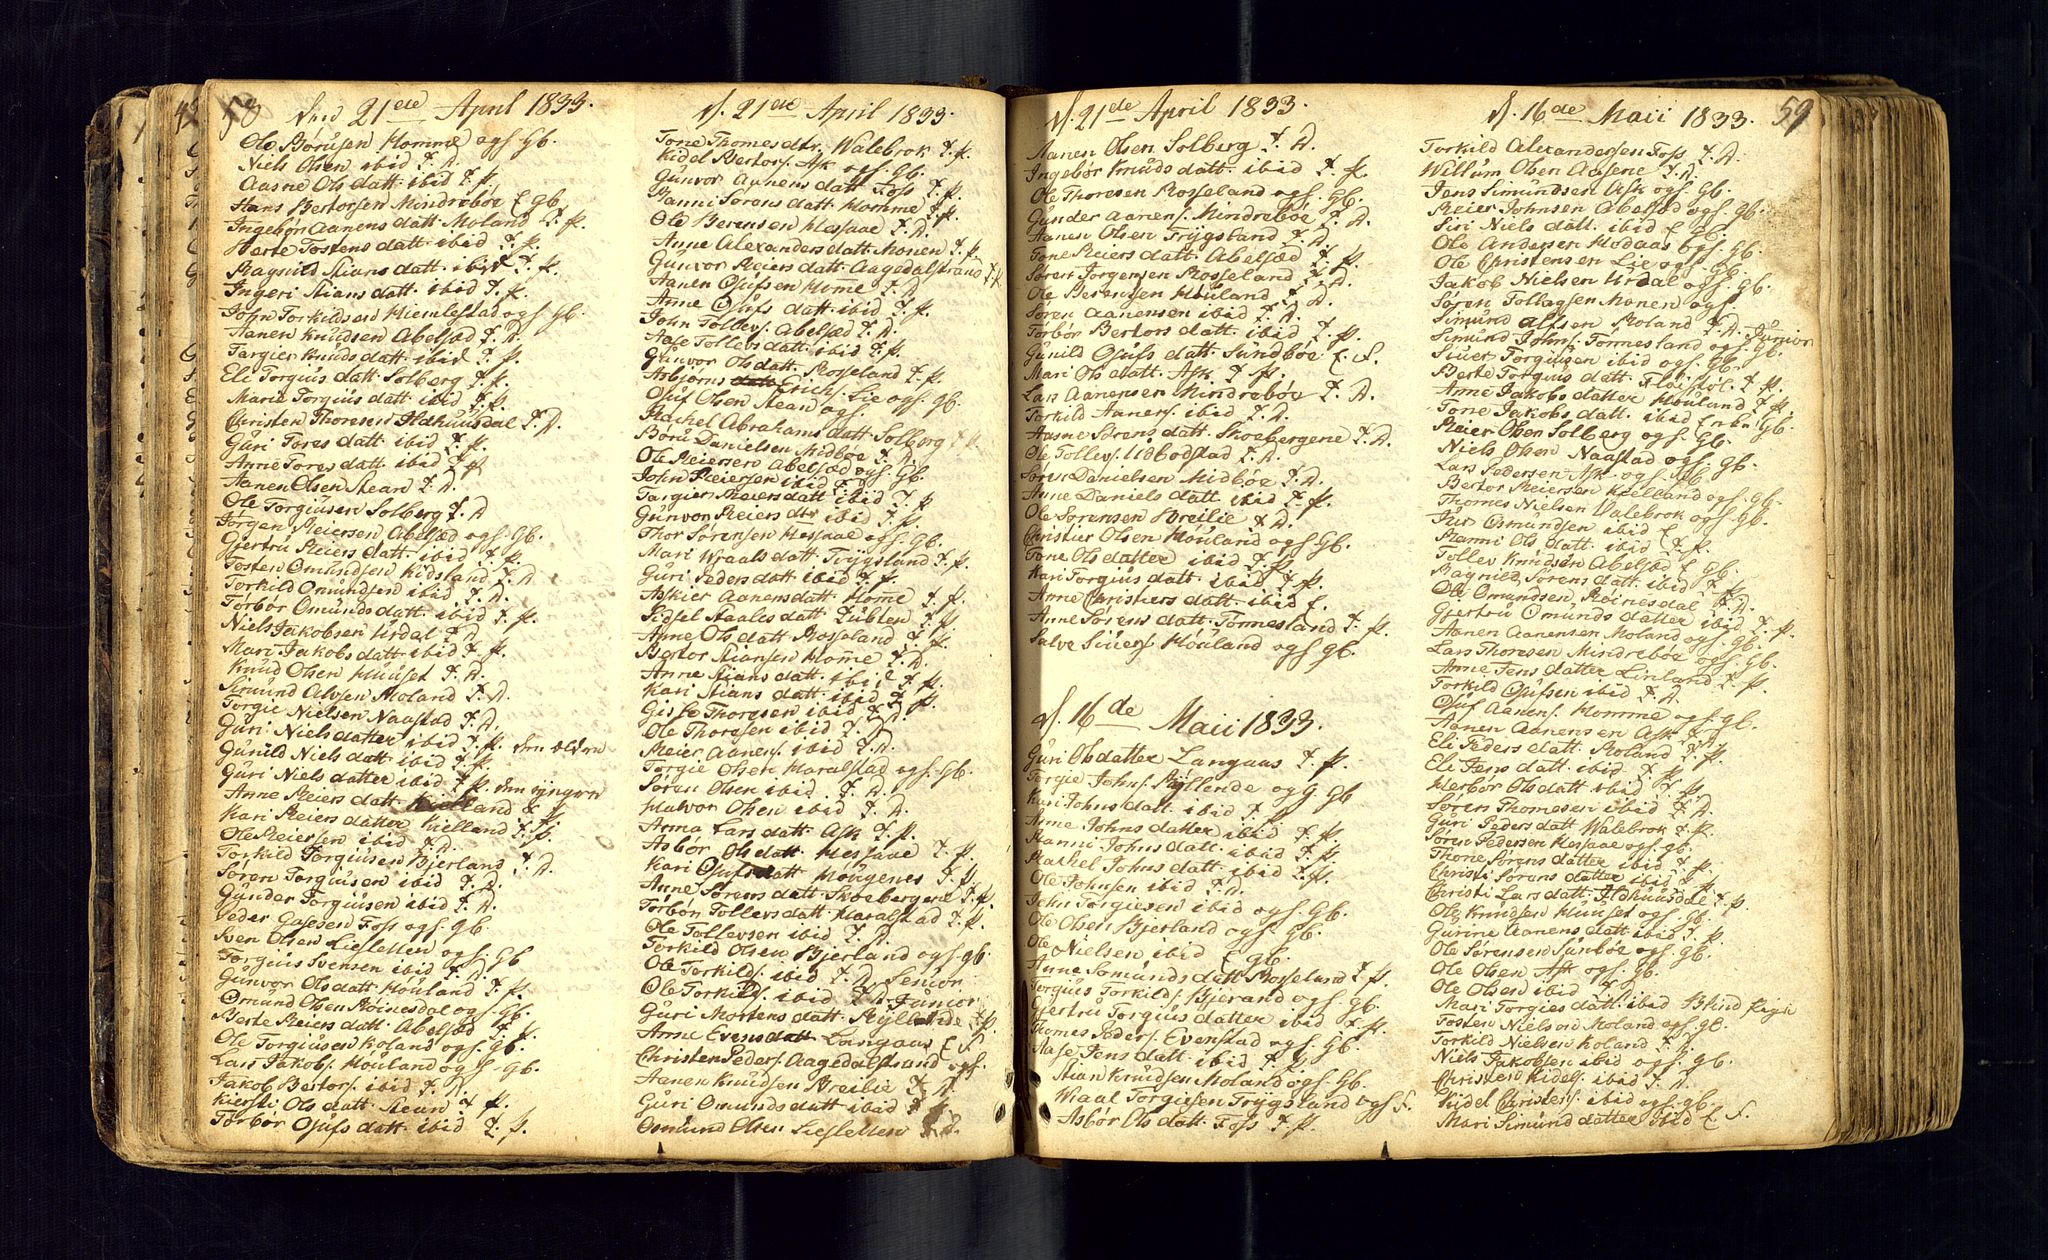 58 d. 21de April 1833.
Ole Børusen Homme ogs. Gb.
Niels Olsen ibid T. D.
Aasne Ols datt. ibid T. P.
Hans Bertorsen Mindrebøe E gb.
Ingebør Aanens datt. Moland T. P.
Berte Tostens datt. ibid T. P.
Ragnild Stians datt. ibid T. P.
Ingeri Stians datt. ibid T. P.
John Torkildsen Hiemlestad ogs Gb.
Aanen Knudsen Abelsæd T. D.
Targier Knuds datt. ibid T. P.
Eli Torgius datt. Solberg T. P.
Marie Torgius datt. ibid T. P.
Christen Thoresen Ildhuusdal T. D.
Guri Tores datt. ibid T. P.
Anne Tores datt. ibid T. P.
Aanen Olsen Stean T. D.
Ole Torgiusen Solberg T. D
Jørgen Reiersen Abelsæd ogs. Gb.
Giertru Reiers datt. ibid T. P.
Tosten Omundsen Kidsland T. D
Torkild Omundsen ibid T. D.
Torbør Omunds datt. ibid T. P.
Niels Jakobsen Urdal T. D
Mari Jakobs datt. ibid T. P.
Knud Olsen Huuset T. D.
Simund Alvsen Moland T. D.
Torgie Nielsen Naastad T. D.
Guri Niels datter ibid T. P. den eldre
Gunild Niels datt ibid T. P.
Guri Niels datter ibid T. P. den yngre
Anne Reiers datt. Kielland T. P.
Kari Reiers datter Kielland T. P.
Ole Reiersen ibid T. D.
Torkild Torgiusen Bierland T. D.
Søren Torgiusen ibid T. D.
Gunder Torgiusen ibid T. D.
Peder Foss ogs. Gb
Sven Olsen Liesletten ogs. Gb
Torgius Svensen ibid T. D.
Gunvor Ols datt. Houland T. P.
Omund Olsen Roinesdal ogs. Gb.
Berte Reiers datt. Abelsæd T. P.
Ole Torgiusen Roland ogs. Gb.
Lars Jakobs. Houland ogs. gb.
Jakob Bertors. ibid T. D.
Kiersti Ols datt. Stean T. P.
Torbør Osufs datt. ibid T. P.
d. 21de April 1833.
Tone Thomes dtr. Walebrok T. P.
Kidel Bertors. Ask ogs. Gb.
Gunvor Aanens datt Foss T. P.
Ranni Sørens datt. Homme T. P.
Ole Berensen Hessaae T. D.
Anne Alexanders datt. Monen T. P.
Gunvor Reiers datt. Aagedalstrand T. P.
Aanen Osufsen Home T. D.
Anne Osufs datt. ibid T. P.
John Tollevs. Abelsæd T. D.
Aase Tollevs datt. ibid T. P.
Gunvor Ols datt. Rosseland T. P.
Asbjørns Erichs. Lie ogs. gb.
Osuf Olsen Stean ogs.
Rachel Abrahams datt. Solberg T. P.
Boru Danielsen Midbøe T. D.
Ole Reiersen Abelsæd ogs. Gb.
John Reiersen ibid T. D
Targier Reiers datt ibid T. P
Gunvor Reiers dtr ibid T. P
Thor Sørensen Hessaae ogs. Gb.
Mari Wraals datt. Trygsland T. P.
Guri Peders datt. ibid T. P.
Askier Aanens datt. Home T. P.
Sidsel Staales datt. T. P.
Anne Ols datt. Rosseland T. P.
Bertor Stiansen Home T. D.
Anne Stians datt. ibid T. P.
Kari Stians datt. ibid T. P.
Thoresen ibid T. D.
Ole Thoresen ibid T. D.
Reier Aanens. ibid T. D.
Torgie Olsen Haralstad ogs. Gb.
Søren Olsen ibid T. D.
Halvor Olsen ibid T. D.
Anna Lars datt. Ask T. P.
Asbør Ols datt. Hessaae T. P.
Kari Osufs datt Hougenes T. P.
Anne Sørens datt. Skoebergene T. P.
Torbør Tollevs datt. Haralstad T. P.
Ole Tollevsen ibid T. D.
Torkild Olsen Bjerland ogs. gb.
Ole Torkilds. ibid T. D. Senior
Ole Torkilds. ibid T. D. Junior
Guri Mortens datt. Ryllende T. P.
Anne Evens datt. Langaas E F
Christen Peders. Aagedalstrand ogs.
Aanen Knudsen Breilie T. D
Guri Omunds datt ibid T.
Osmund Olsen Liesletten T. D.
d. 21de April 1833
Aanen Olsen Solberg T. D.
Ingebør Knuds datt. ibid T. P.
Ole Thoresen Rosseland ogs. Gb.
Gunder Aanens. Mindrebøe T. D.
Aanen Olsen Trygsland T. D.
Tone Reiers datt. Abelsæd T. P.
Søren Jørgensen Rosseland T. D.
Ole Berensen Houland T. D.
Søren Aanensen ibid T. D.
Torbør Bertors datt. ibid T. P.
Gunild Osufs datt. Sundbøe E. F.
Mari Ols datt. Ask T. P.
Lars Aanensen Mindrebøe T. D.
Torkild Aanens. ibid T. D.
Aasne Sørens datt. Skoebergene T. D.
Ole Tollevs. Udbodstad T. D.
Søren Danielsen Midbøe T. D.
Anne Daniels datt. ibid T. P.
Ole Sørensen Breilie T. D.
Christier Olsen Houland ogs. Gb.
Tone Ols datter ibid T. P.
Kari Torgius datt. ibid T. P.
Anne Christiers datt. ibid E.
Anne Sørens datt. Tonnesland T. P.
Salve Siuers. Houland ogs. gb.
d. 16de Maii 1833.
Guri Ols datter Langaas T. P.
Torgie Johns. Ryllende ogs Gb
Kari Johns datt. ibid T. P.
Anne Johns datter ibid T. P.
Ranni Johns datt. ibid T. P.
Rachel Johns datt. ibid T. P.
Ole Johnsen ibid T. D.
John Torgiesen ibid ogs. Gb.
Ole Olsen Bjerland ogs. Gb.
Ole Nielsen ibid E gb.
Anne Somunds datt. Rosseland T. P.
Torgius Torkilds. Bjerand ogs. Gb.
Giertru Torgius datter ibid T. P.
Thomes Peders. Evenstad ogs. Gb.
Aase Jens datt. ibid T. P.
Stian Knudsen Moland ogs. Gb.
Wraal Torgiesen Trygsland ogs F.
Asbør Ols datt. Foss T. P.
d. 16de Maii 1833. 59
Torkild Alexandersen Foss T. D.
Willum Olsen Aasene T. D.
Jens Simundsen Ask ogs. Gb.
Reier Johnsen Abelsæd ogs. Gb.
Siri Niels datt. ibid E Gb.
Ole Andersen Modaas ogs. Gb.
Ole Christensen Lie ogs. Gb.
Jakob Nielsen Urdal ogs. Gb.
Søren Tollagsen Monen ogs
Simund Alfsen Moland T. D. Junior
Simund Johns. Tonnesland ogs. Gb.
Siuer Torgiusen ibid ogs. Gb.
Berte Torgius datt. Fløistøl T. P.
Anne Jakobs datter Houland T. P.
Tone Jakobs datt. ibid Enke Gb.
Reier Olsen Solberg ogs. Gb.
Niels Olsen Naastad ogs. Gb.
Lars Pedersen Ask ogs. Gb.
Bertor Reiersen Kielland ogs. gb.
Thomes Nielsen Walebrok ogs. Gb.
Jur Osmundsen ibid E
Ranni Ols datt. ibid T. P.
Tollev Knudsen Abelsæd E Gb.
Ragnild Sørens datt. ibid T. P.
Ole Omundsen Roinesdal T. D.
Giertru Omunds datter ibid T. P.
Aanen Aanensen Moland ogs. Gb.
Lars Thoresen Mindrebøe ogs. Gb.
Anne Jens datter Linland T. P.
Torkild Osufsen ibid T. D.
Osuf Aanens. Homme ogs. gb.
Aanen Aanensen Ask T. D.
Eli Peders datt. Roland T. P.
Eli Jens datt. ibid T. P.
Herbør Ols datt. ibid T. P.
Søren Thomesen ibid T. D.
Guri Peders datt Walebrok T. P.
Søren Pedersen Hessaae ogs. gb.
Thone Sørens datter ibid T. P.
Christi Sørens datter ibid T. P.
Christi Lars datt. Ildhuusdal T. P.
Ole Knudsen Huuset ogs. Gb.
Gurine Aanens datt. ibid T. P.
Ole Sørensen Sunbøe ogs. Gb.
Ole Olsen Ask ogs. Gb.
Ole Olsen ibid T. D.
Mari Torgies datt. ibid Blind Pige
Tosten Nielsen Moland ogs. gb.
Torkild Nielsen Roland T. D.
Niels Jakobsen ibid ogs. Gb.
Christen Kidels. ibid T. D.
Kidel Christens. ibid ogs. gb.
Mari Simund datter ibid E F.